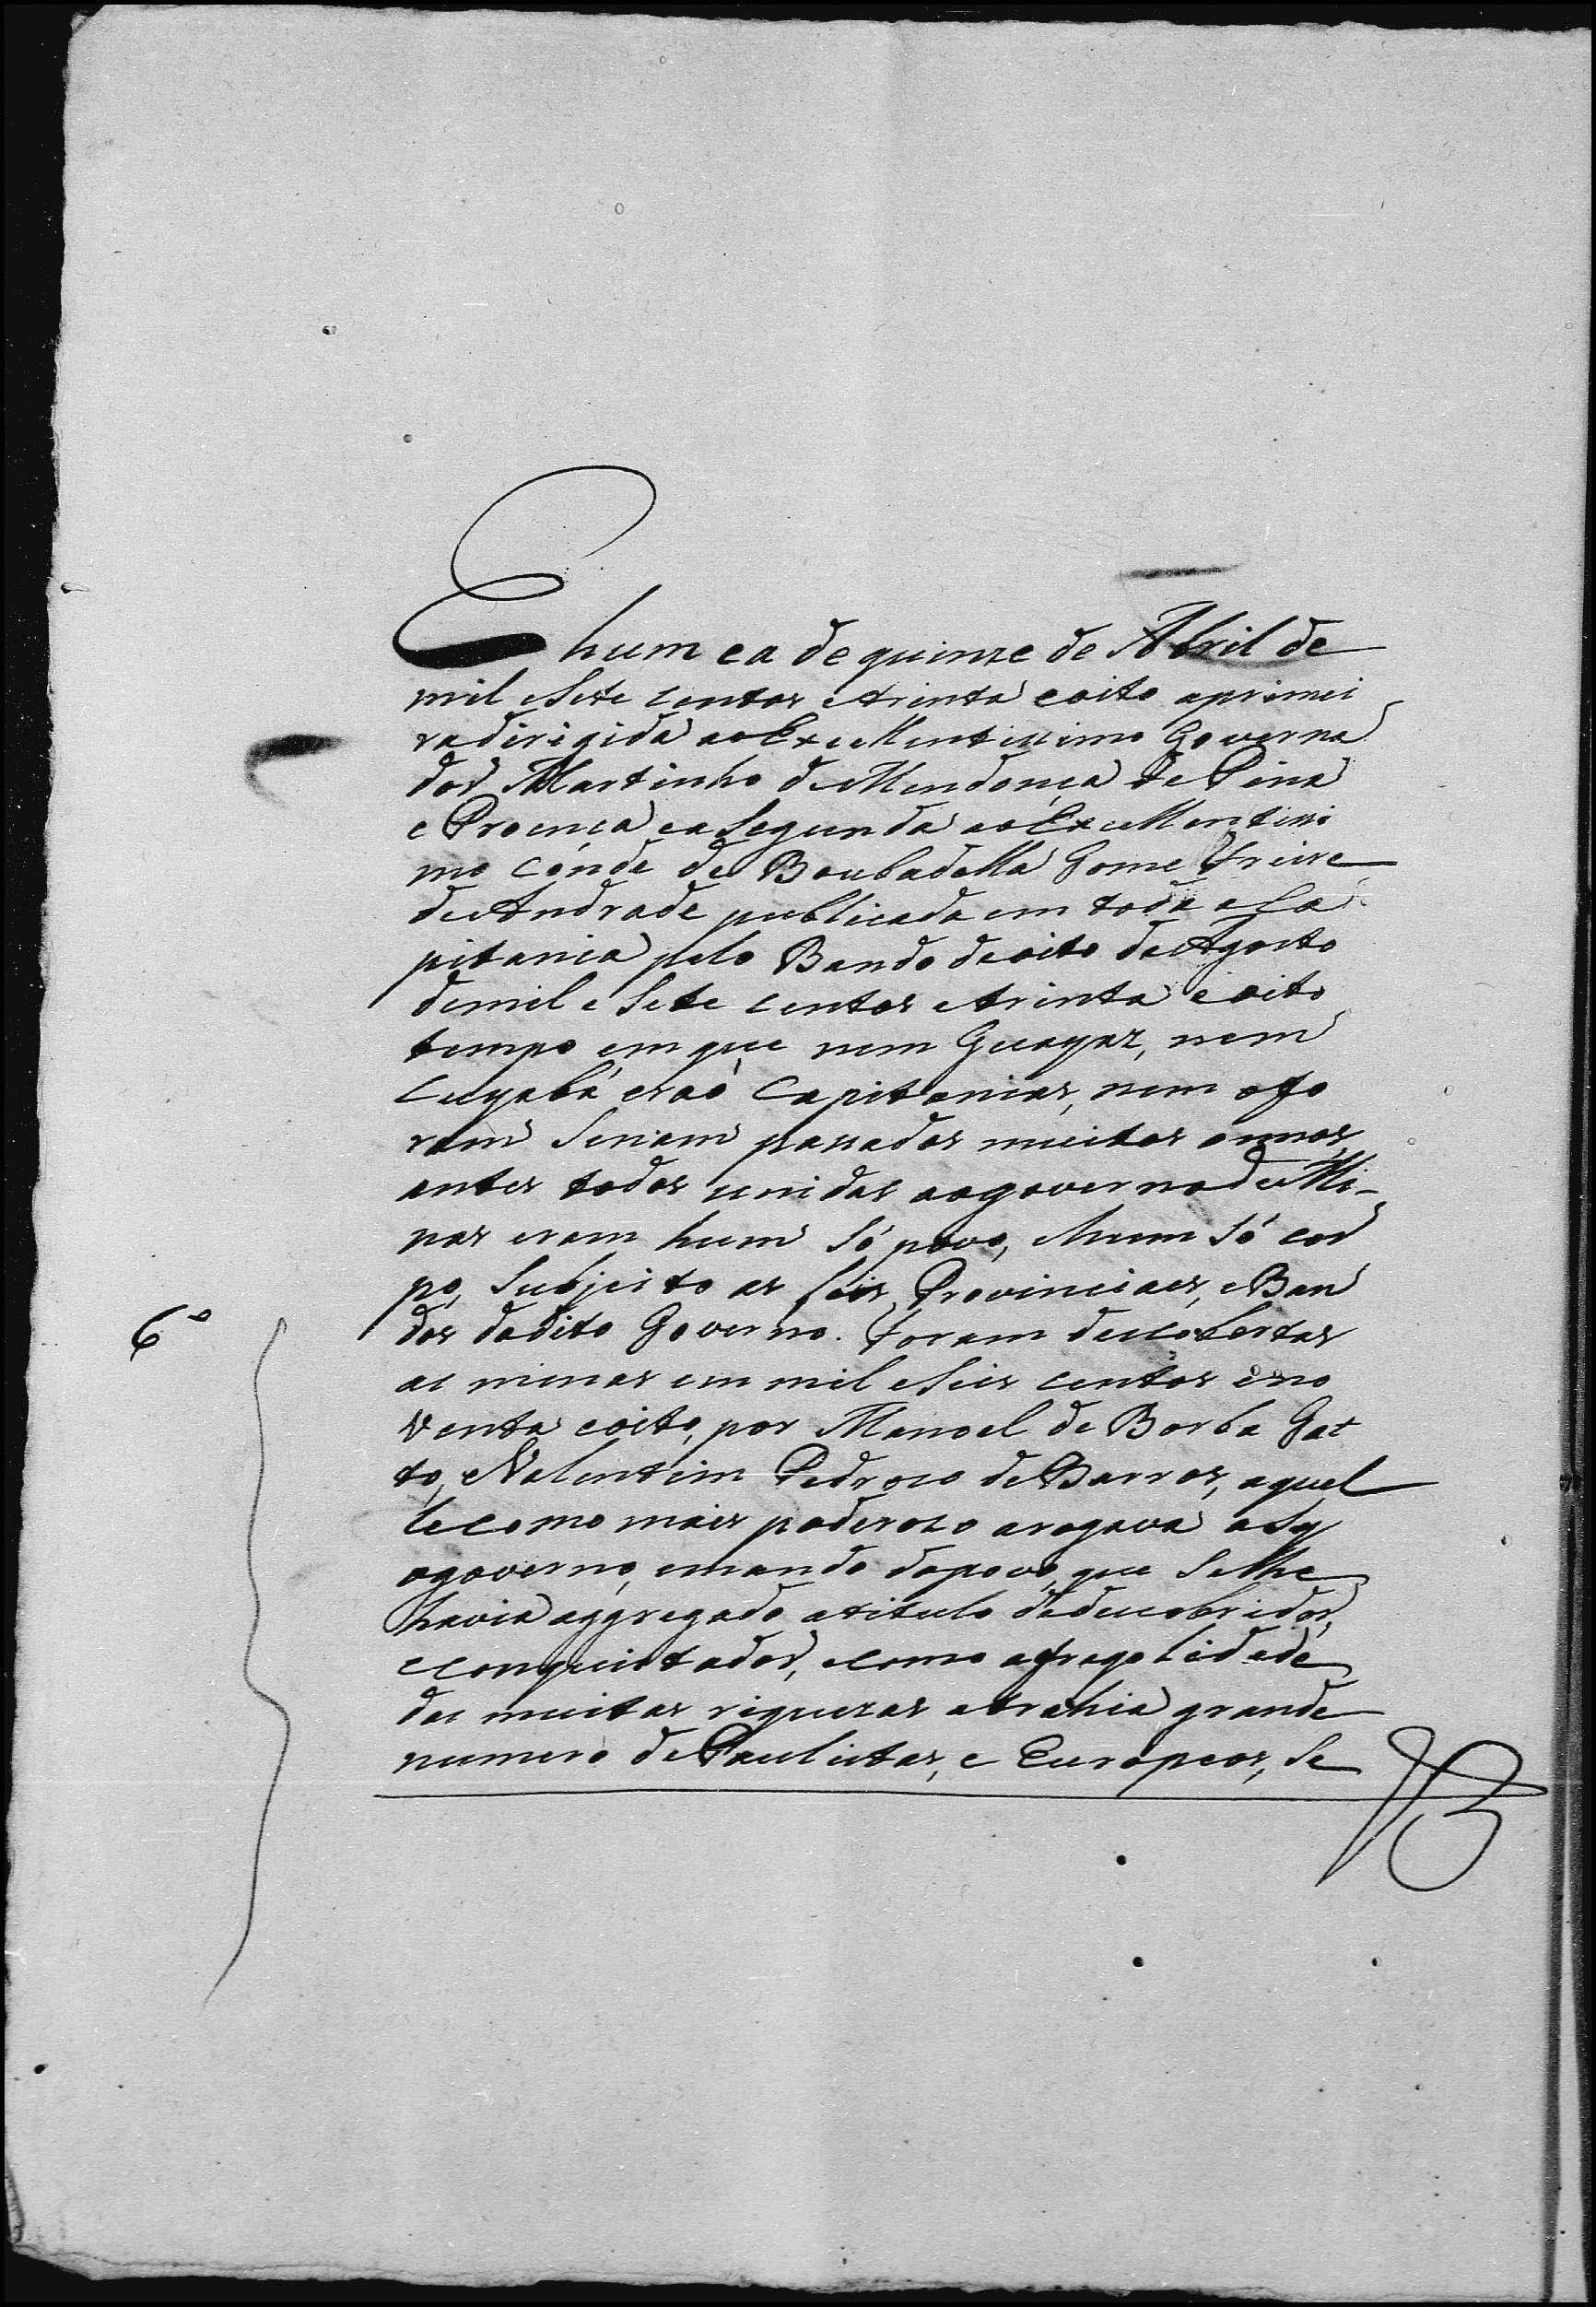 E hum ea de quinze de Abril de
mil e Sete centos e trinta e oito a primei
ra dirigida ao Excellentissimo Governa
dor Martinho de Mendonça de Pina
e Proença e a Segunda ao Excellentissi
mo Conde de Boubadella Gome Freire
de Andrade publicada em toda a Ca
pitania pelo Bando de oito de Agosto
de mil e Sete centos e trinta e oito
tempo em que nem Guayaz, nem
Cuyabá eraõ Capitanias, nem o fo
ram Senam passados muitos annos
antes todos unidos ao governo de Mi-
nas eram hum Só povo, e hum Só cor
po, Subjeito as Leis Provinciaes, e Ban
dos do dito Governo. Foram descobertas
6º
as minas em mil e Seis centos e no
venta e oito, por Manoel de Borba Gat
to, e Valentim Pedrozo de Barros, aquel
le como mais poderozo arogava a Sy
o governo, e mando do povo, que Se lhe
havia aggregado a titulo de descobridor,
e conquistador, e como a fragolidade
das muitas riquezas atrahia grande
numero de Paulistas, e Europeos, Se